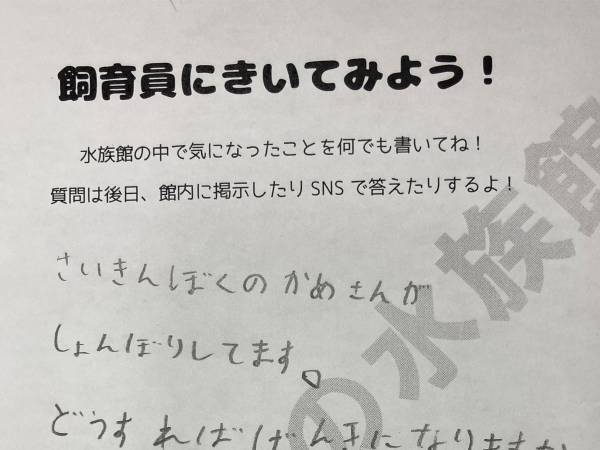 飼育員にきいてみよう！
水族館の中で気になったことを何でも書いてね！
質問は後日、館内に掲示したり SNS で答えたりするよ！
さいきんぼくのかめさんが
しょんぼりしてます。
どうすればげんきになりますか
の水族館